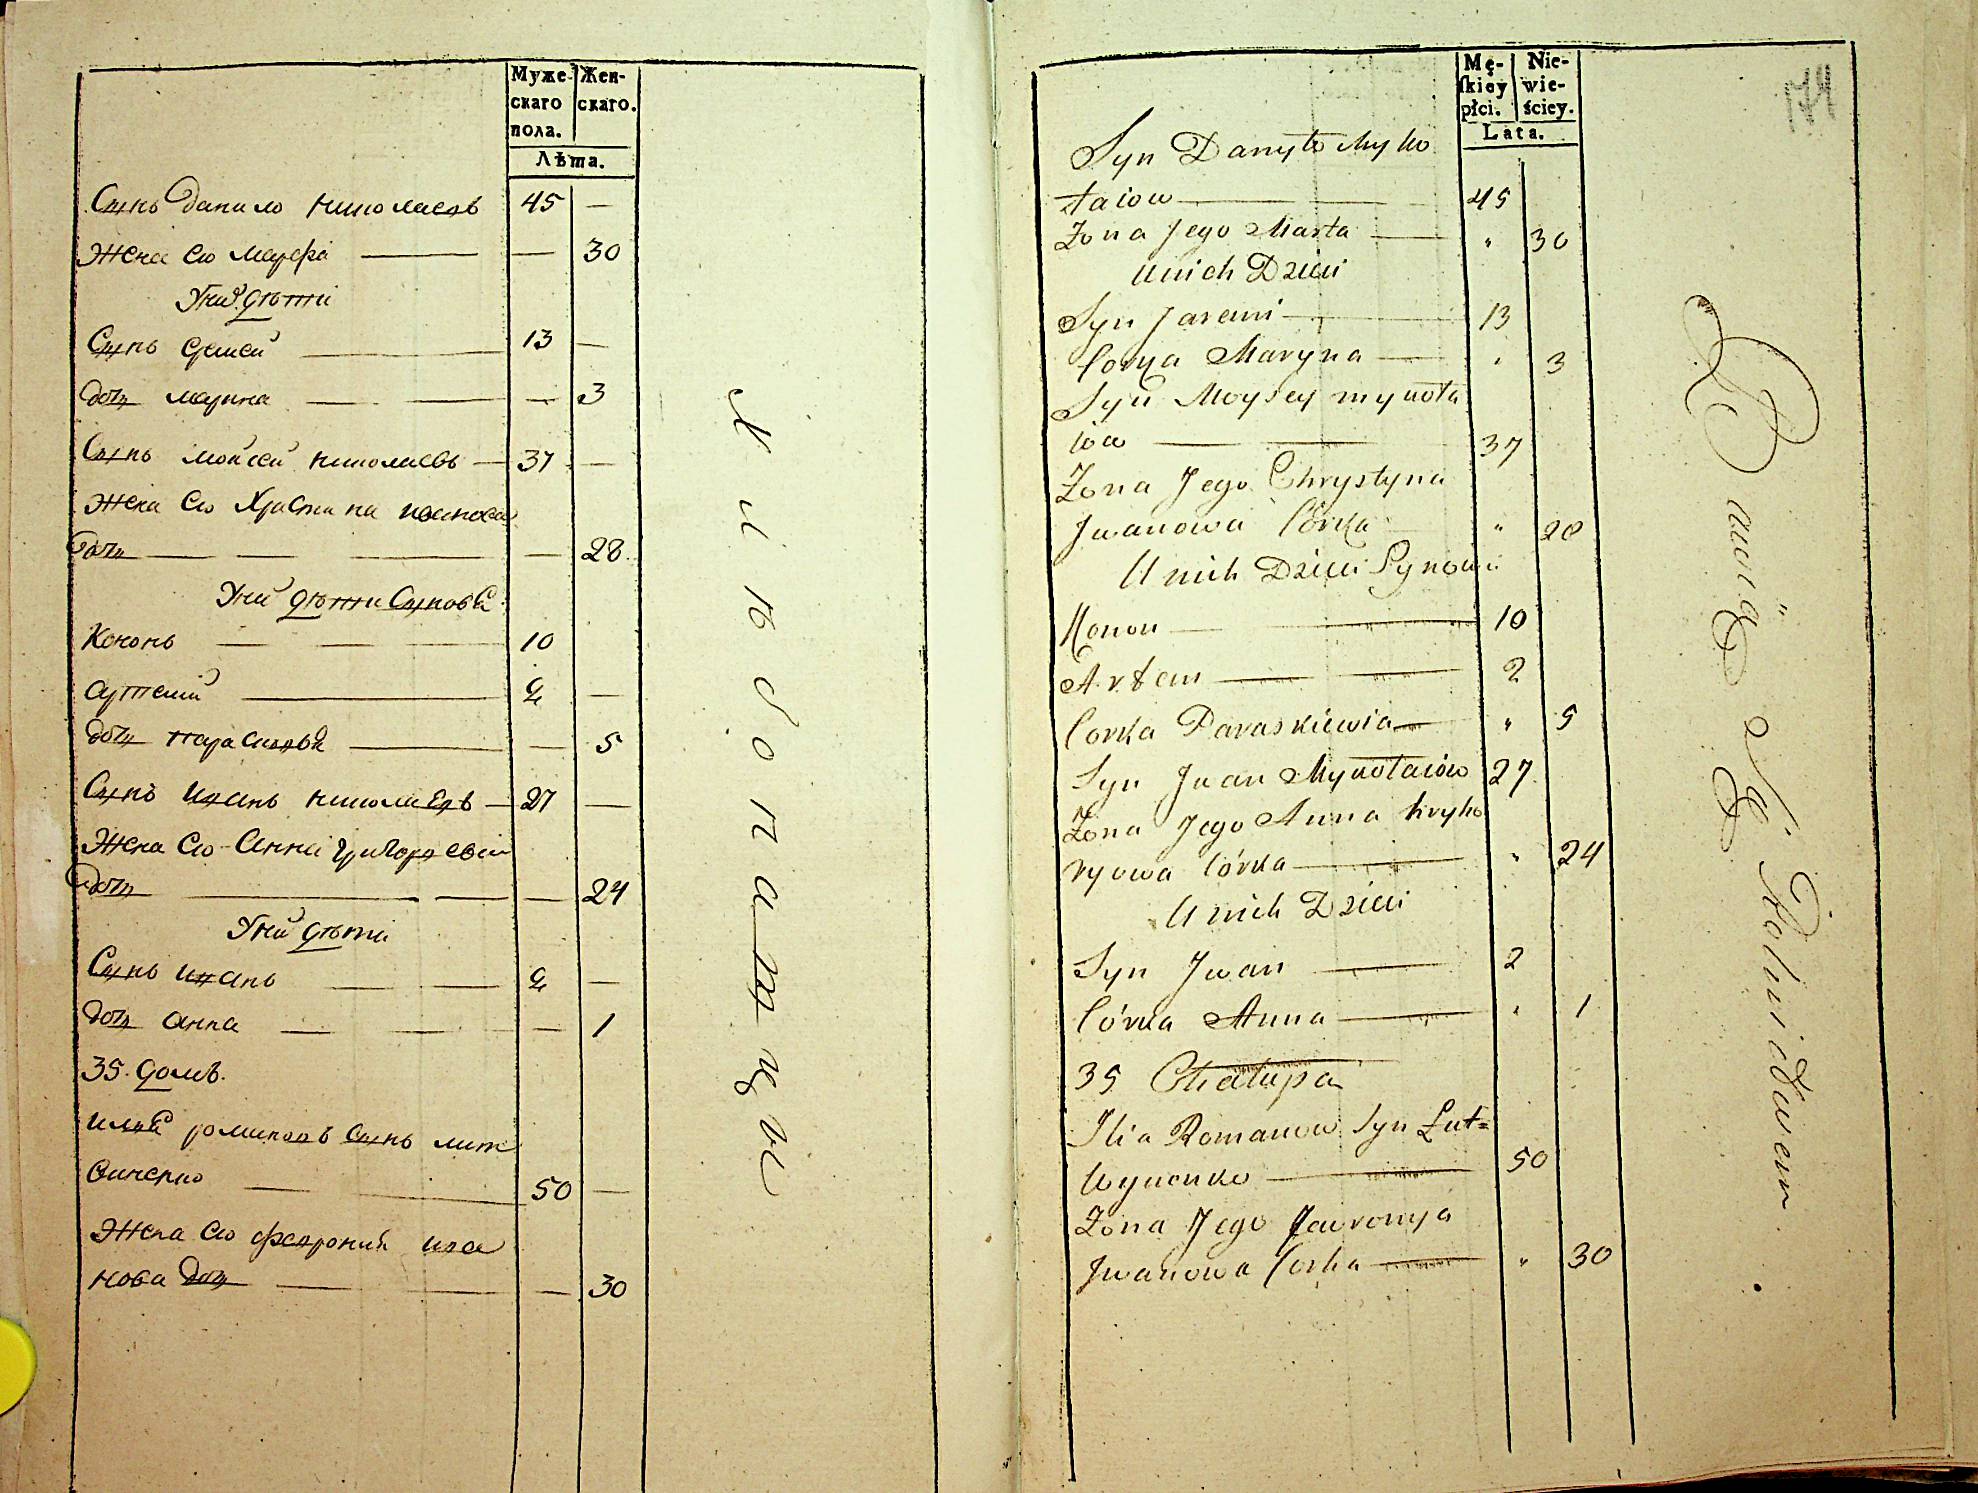 Муже- Жен-
скаго скаго.
пола.
Лѣта.
Сынъ данило николаевъ 45 —
Жена его марфа — 30
У них дѣти
Сынъ еремей 13 —
дочь марина — 3
Сынъ мойсей николаевъ 37 —
Жена его Христина иванова
дочь — 28
У них дѣти Сыновя
Кононъ 10
артемий 2 —
дочь парасковя — 5
Сынъ иванъ николаевъ 27 —
Жена его Анна григорьева
дочь — 24
У них дѣти
Сынъ иванъ 2 —
дочь анна — 1
35. домъ.
илия романовъ сынъ лит
виненко 50 —
Жена его феврония ива
нова дочь — 30
Хлѣбопашцы
Mę- Nie-
skiey wie-
płci. ściey.
Lata.
174
Syn Danyło Myko
łaiow 45
Zona Jego Marta " 30
U nich Dzieci
Syn Jaremi 13
Corka Maryna " 3
Syn Moysey mykoła
iow 37
Zona Jego Chrystyna
Jwanowa Córka " 28
U nich Dzieci Synowie
Konon 10
Artem 2
Corka Paraskiewia " 5
Syn Jwan Mykołaiow 27
Żona Jego Anna hryho
ryowa Córka " 24
U nich Dzieci
Syn Jwan 2
Córka Anna " 1
35 Chałupa
Ilia Romanow Syn Lut=
wynenko 50
Zona Jego Jawronya
Jwanowa Corka " 30
Bawią Się Rolnictwem